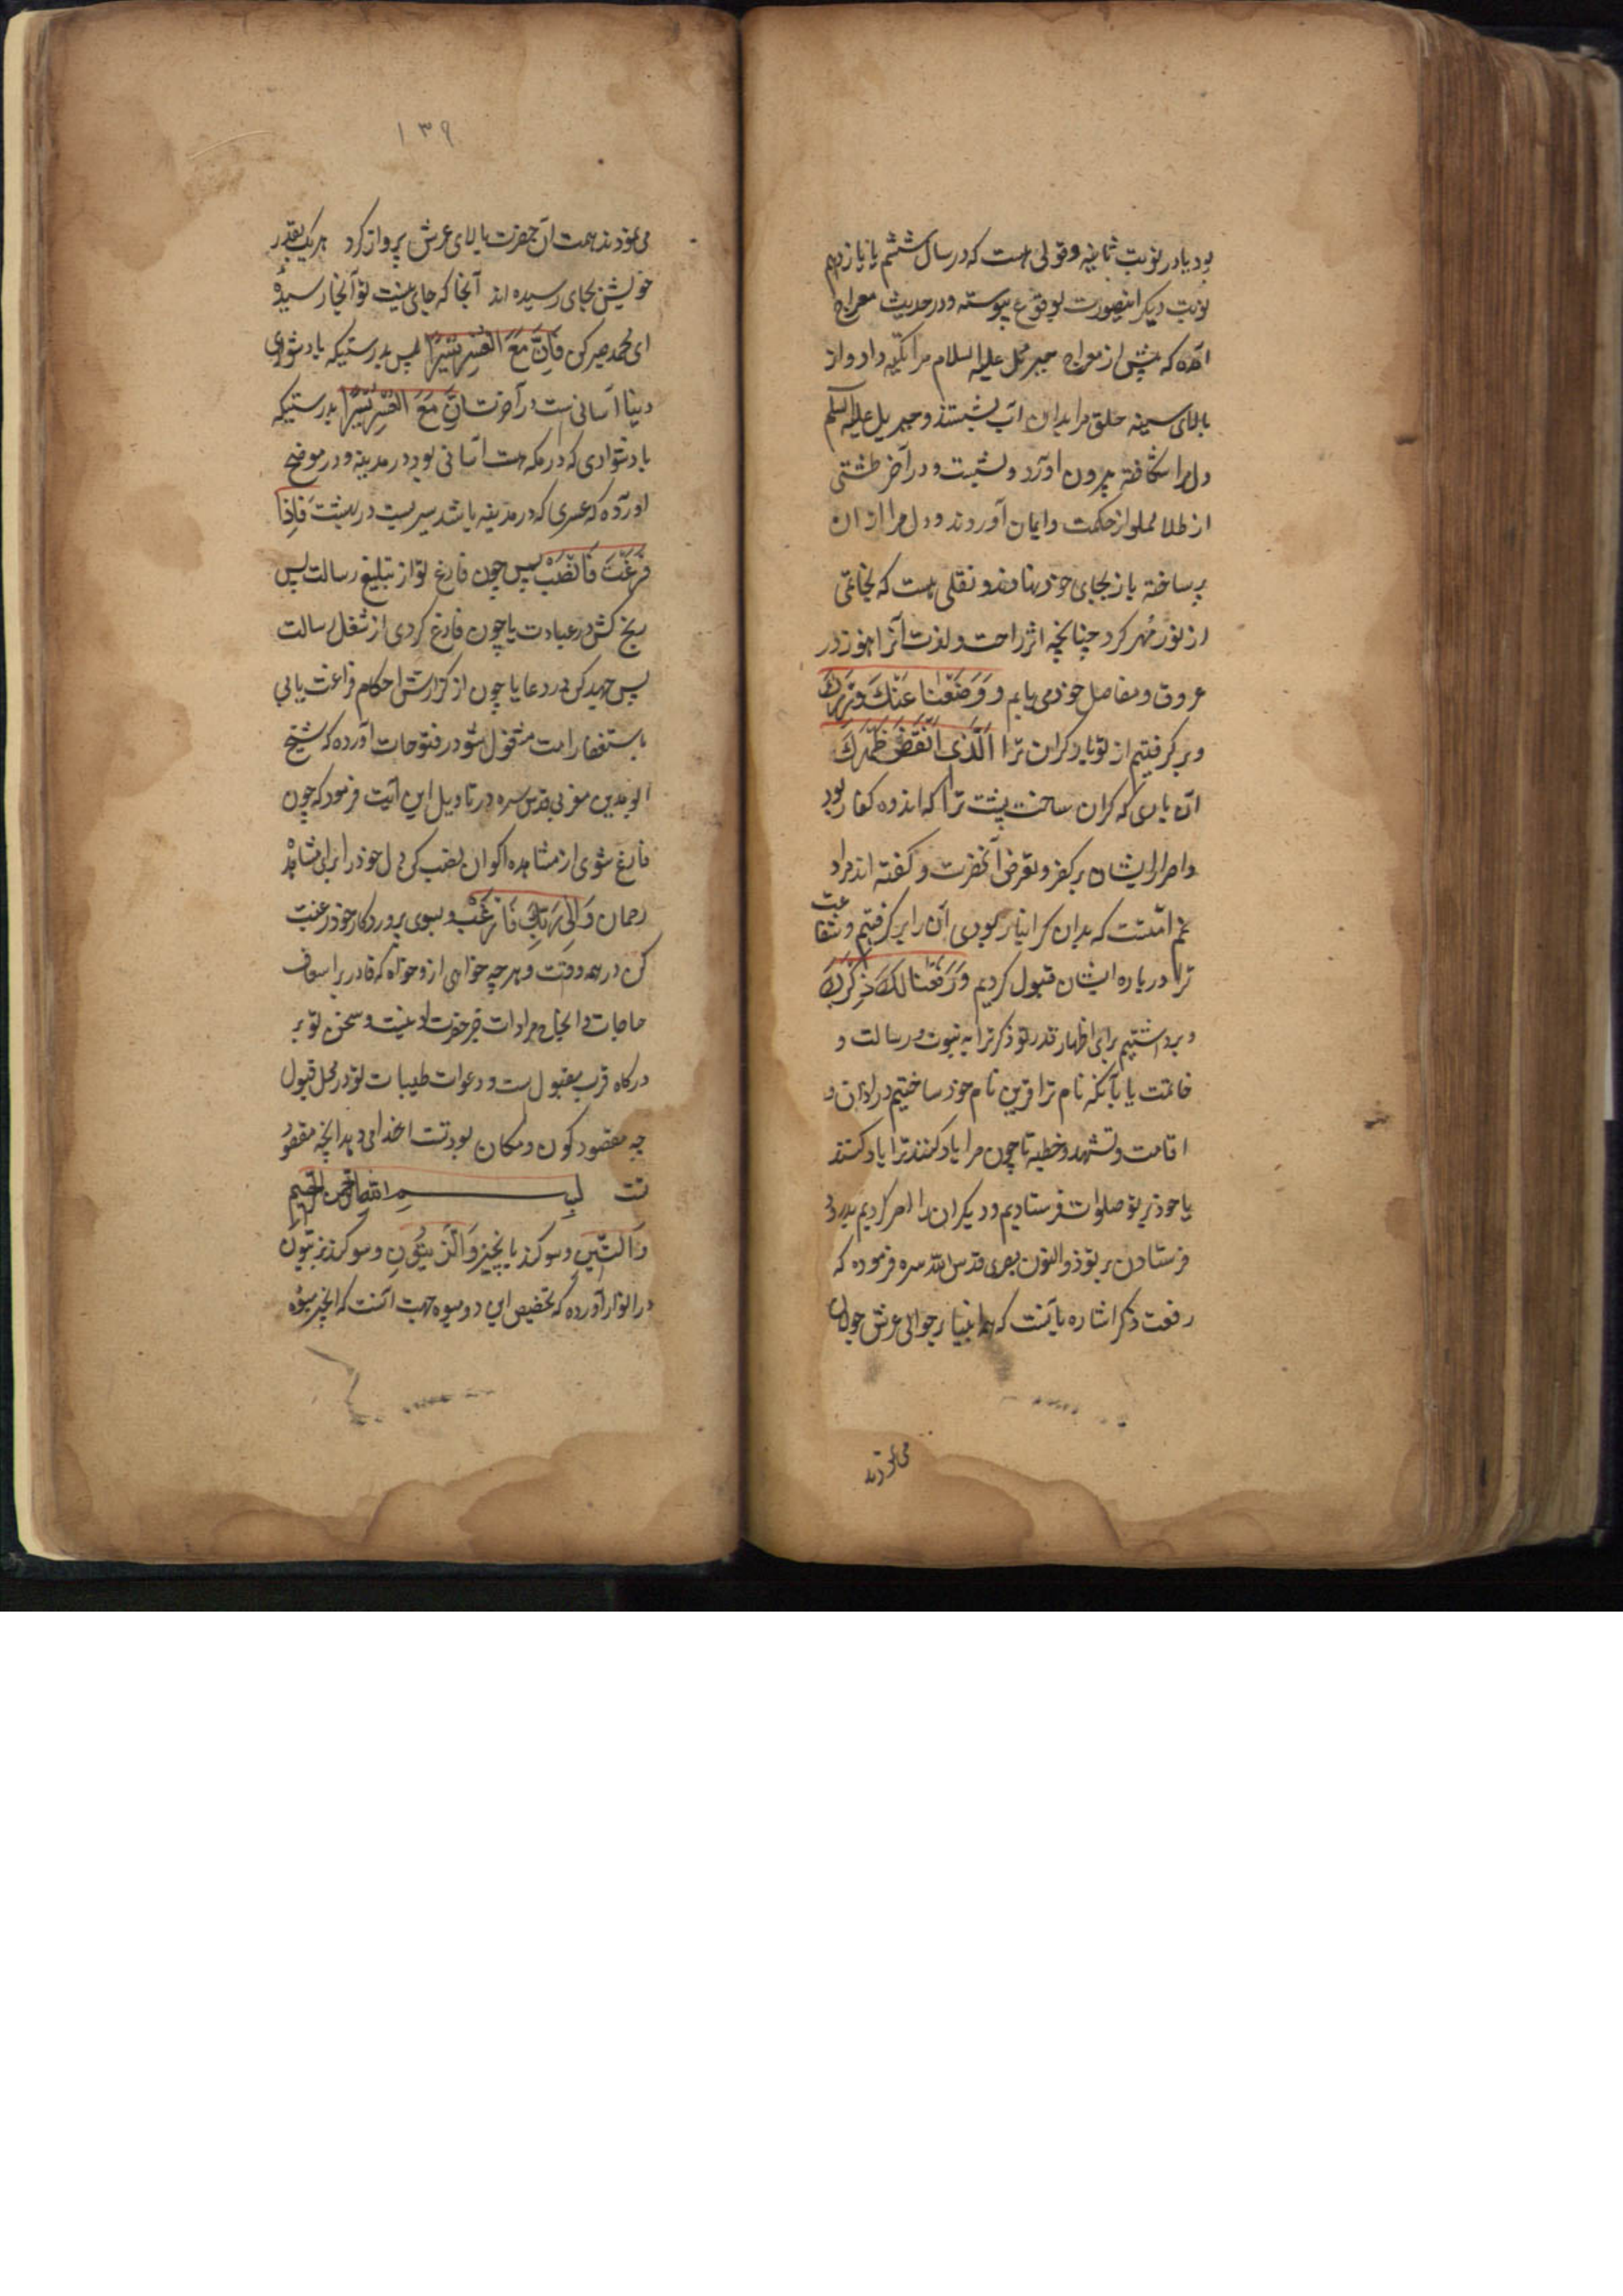 بود یا در نوبت ثانیه و قولی هست که در سال ششم یا یازدهم
نوبت دیگر اینصورت بوقوع پیوسته و در حدیث معراج
آمده که پیش از معراج جبرئیل علیه السلام مرا تکیه داد و از
بالای سینه حلق مرا بدان آب بشستند و جبریل علیه السلم
دل مرا شکافته بیرون آورد و بشست و در آخر طشتی
از طلا مملو از حکمت و ایمان آوردند و دل مرا از ان
پر ساخته باز بجای خود نهادند و نقلی هست که بخاتمی
از نور مهر کرد چنانچه اثر راحت و لذت آنرا هنوز در
عروق و مفاصل خود می یابم و وَوَضَعْنا عَنْكَ وِزْرَكَ
و بر گرفتیم از تو بار گران ترا اَلَّذی اَنْقَضَ ظَهْرَكَ
آن باری که گران ساخت پشت ترا که اندوه کفار بود
و اصرار ایشان بر کفر و تعرض آنحضرت و گفته اند مراد
غم امتست که بدان گرانبار بودی آن را بر گرفتیم و شفاعت
ترا درباره ایشان قبول کردیم وَرَفَعْنا لَكَ ذِكْرَكَ
و برداشتیم برای اظهار قدر تو ذکر ترا به نبوت و رسالت و
خاتمت یا بآنکه نام ترا قرین نام خود ساختیم در اذان و
اقامت و تشهد و خطبه تا چون مرا یاد کنند ترا یاد کنند
یا خود بر تو صلوات فرستادیم و دیگران را امر کردیم بدرود
فرستادن بر تو ذوالنون مصری قدس الله سره فرموده که
رفعت ذکر اشاره بآنست که همه انبیا بر حوالی عرش جولان
می نمودند
۱۳۹
می نمودند همت آن حضرت بالای عرش پرواز کرد هر یک بقدر
خویش بجای رسیده اند آنجا که جای نیست تو آنجا رسیدۀ
ای محمد صبر کن فَاِنَّ مَعَ الْعُسْرِ یُسْرًا پس بدرستیکه با دشواری
دنیا آسانی است در آخرت اِنَّ مَعَ الْعُسْرِ یُسْرًا بدرستیکه
با دشواری که در مکه هست آسانی بود در مدینه و در موضح
آورده که عسری که در مدینه باشد یسریست در بهشت فَاِذا
فَرَغْتَ فَانْصَبْ پس چون فارغ تو از تبلیغ رسالت پس
رنج کش در عبادت یا چون فارغ گردی از شغل رسالت
پس جهد کن در دعا یا چون از گزارش احکام فراغت یابی
باستغفار امت مشغول شو در فتوحات آورده که شیخ
ابو مدین مغربی قدس سره در تاویل این آیت فرمود که چون
فارغ شوی از مشاهده اکوان نصب کن دل خود را برای مشاهدۀ
رحمان وَاِلی رَبِّكَ فَارْغَبْ و بسوی پروردگار خود رغبت
کن در همه وقت و هر چه خواهی ازو خواه که قادر بر اسعاف
حاجات و انجاح مرادات جز حضرت او نیست و سخن تو بر
درگاه قرب مقبول است و دعوات طیبات تو در محل قبول
چه مقصود کون و مکان بودتست خدا می دهد آنچه مقصود
تست بسم الله الرحمن الرحیم
وَالتّینِ و سوگند بانجیر وَالزَّیْتُونِ و سوگند بزیتون
در انوار آورده که تخصیص این دو میوه جهت آنست که انجیر میوۀ